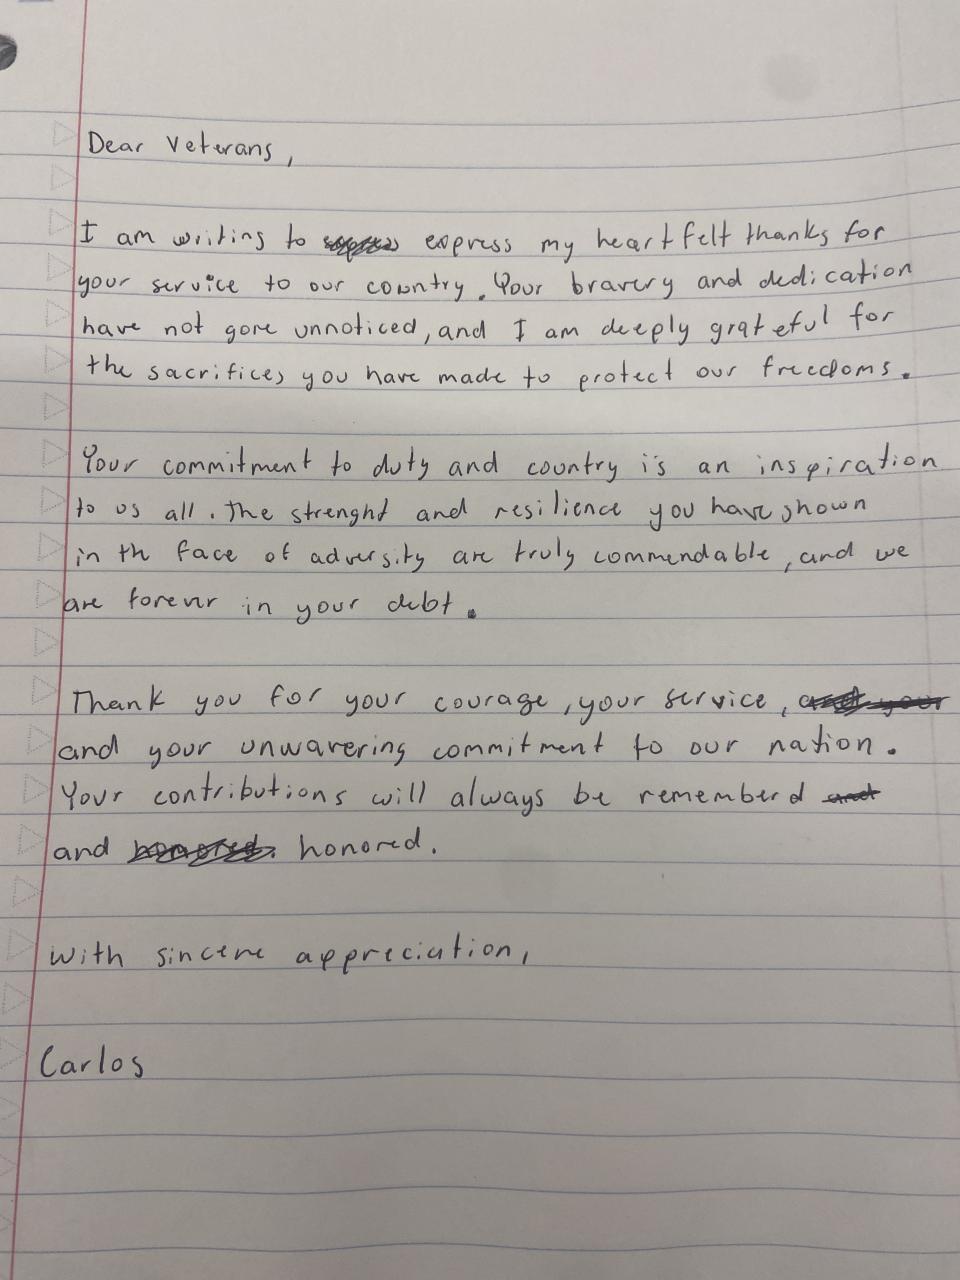 Dear Veterans,
I am writing to express my heartfelt thanks for
your service to our country. Your bravery and dedication
have not gone unnoticed, and I am deeply grateful for
the sacrifices you have made to protect our freedoms.
Your commitment to duty and country is an inspiration
to us all. The strenght and resilience you have shown
in th face of adversity are truly commendable, and we
are forever in your debt.
Thank you for your courage, your service,
and your unwavering commitment to our nation.
Your contributions will always be rememberd
and honored.
With sincere appreciation,
Carlos